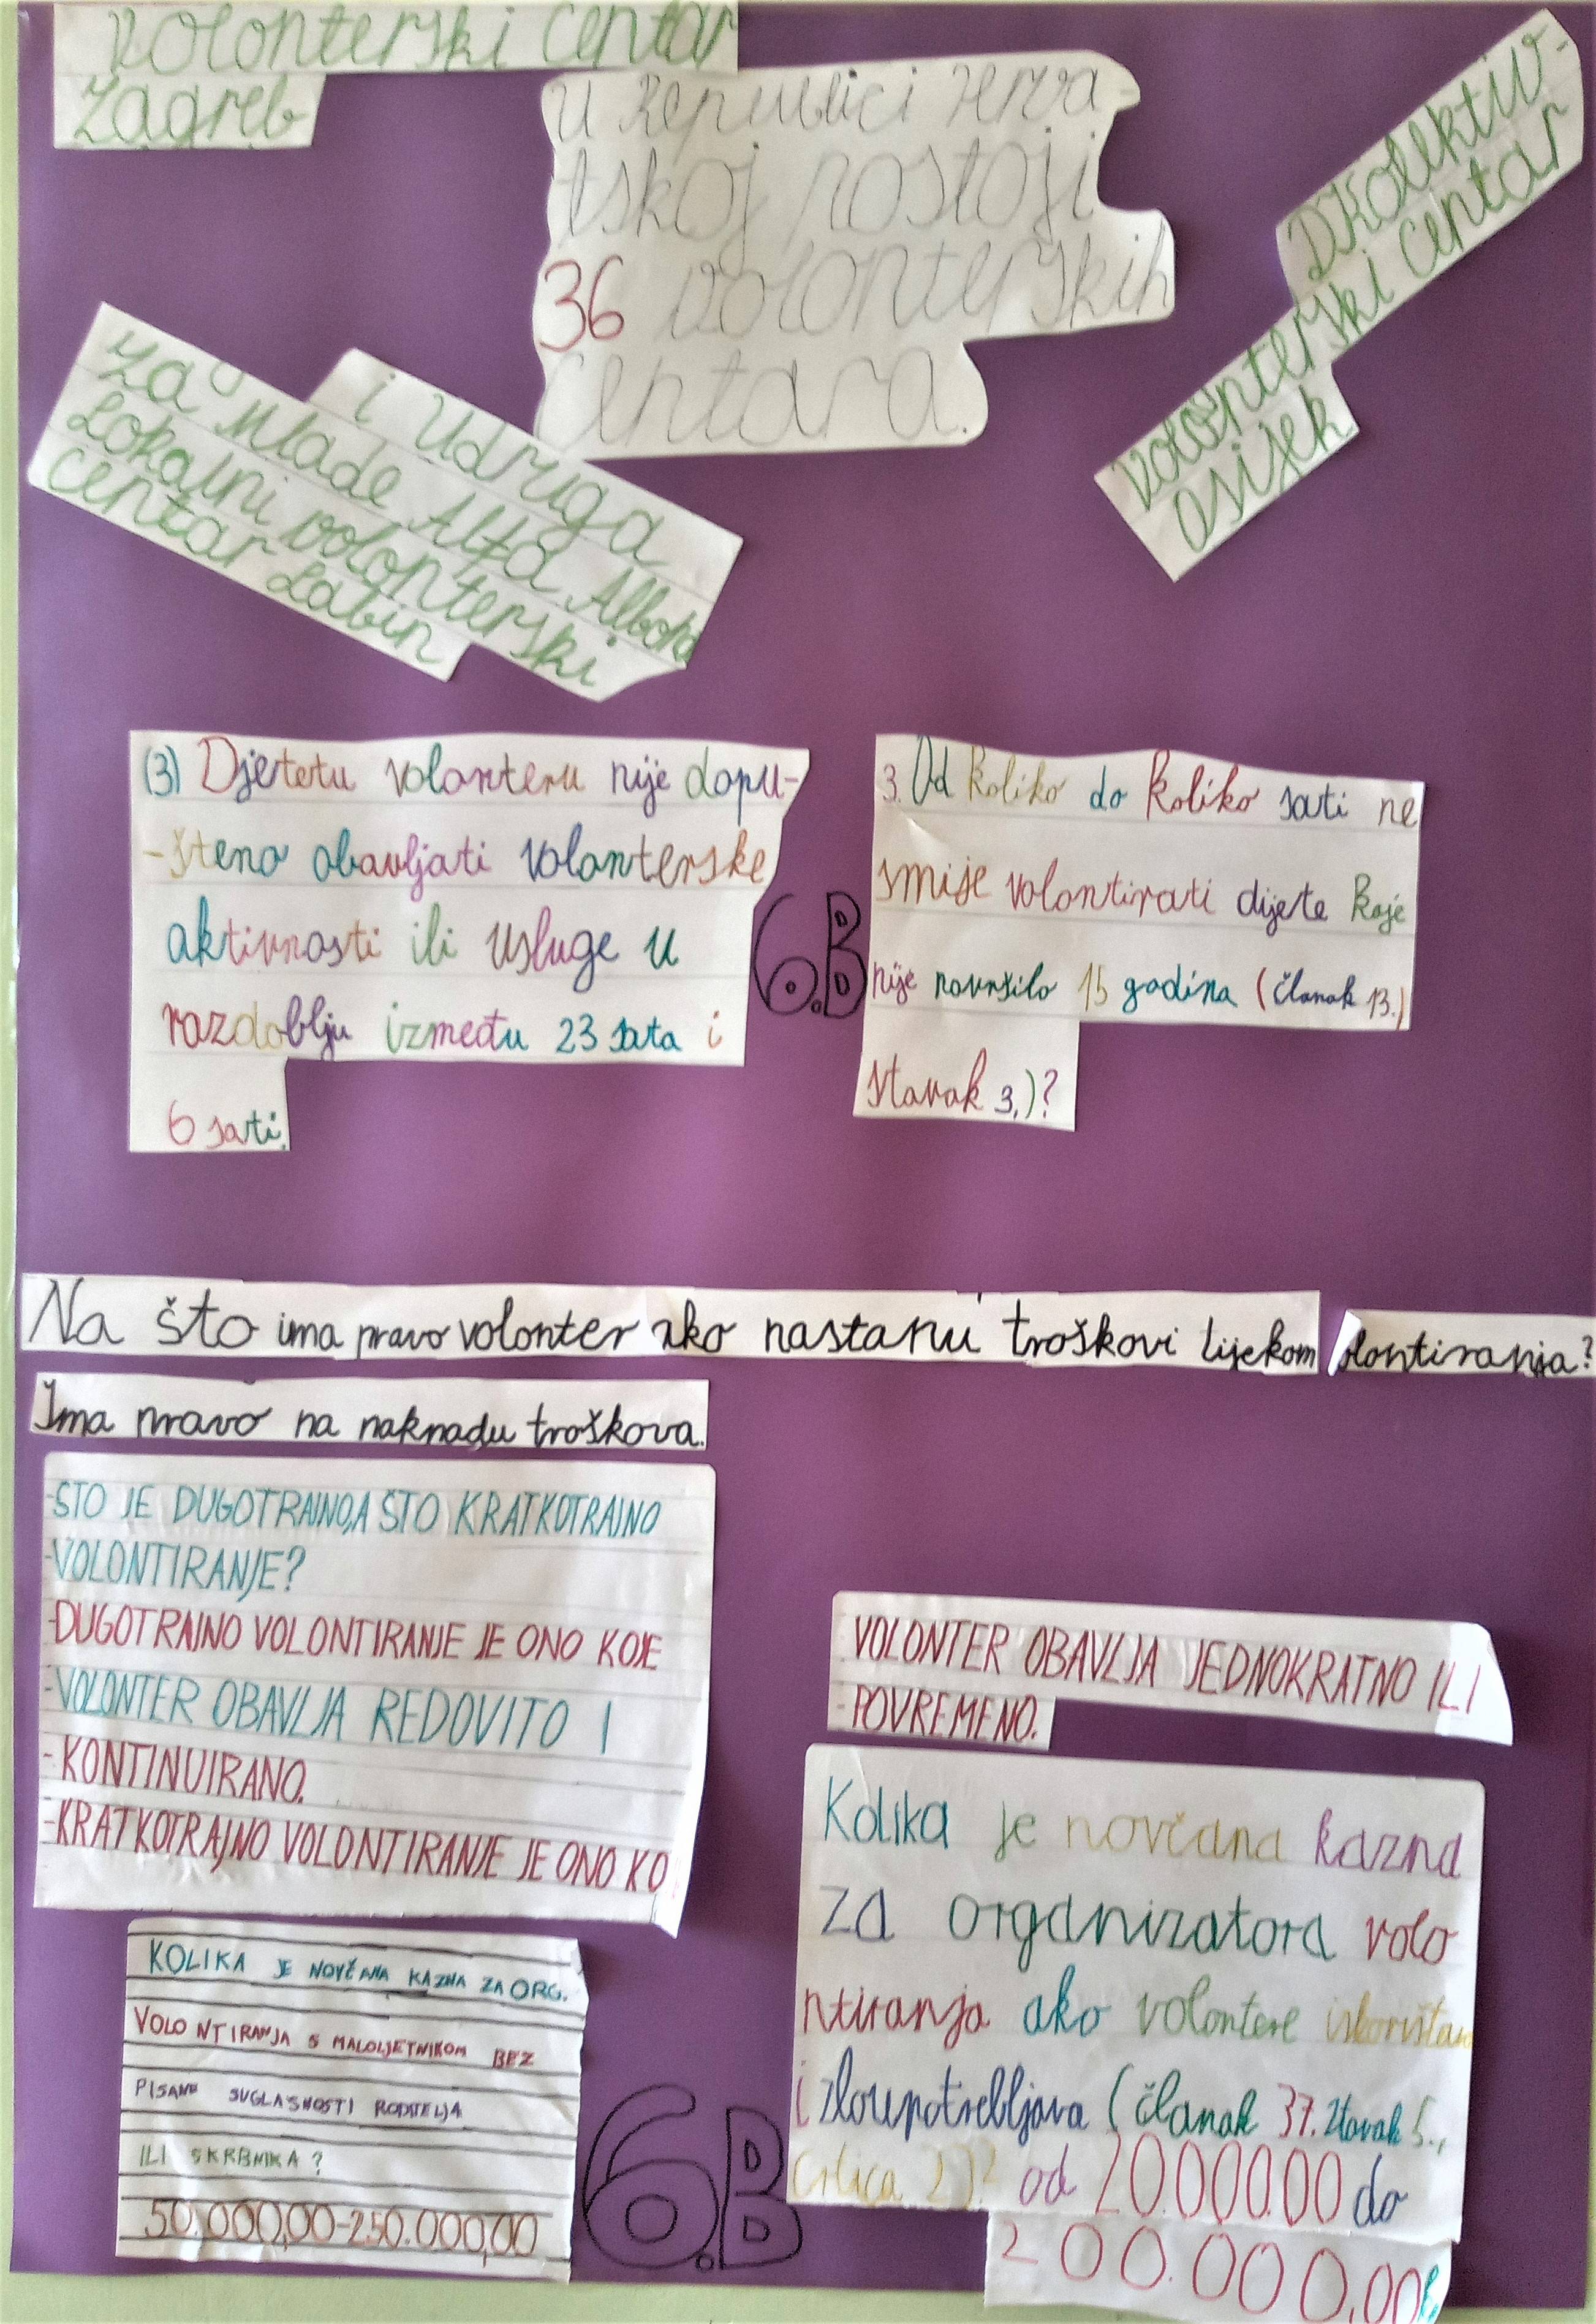 Volonterski centar
Zagreb
U Republici Hrva-
tskoj postoji
36 volonterskih
centara.
DKolektiv-
volonterski centar
Osijek
i Udruga
za Mlade Alfa Albona
Lokalni volonterski
centar Labin
(3) Djetetu volonteru nije dopu-
-šteno obavljati volonterske
aktivnosti ili usluge u
razdoblju između 23 sata i
6 sati.
6.B
3. Od koliko do koliko sati ne
smije volontirati dijete koje
nije navršilo 15 godina (članak 13.)
stavak 3.)?
Na što ima pravo volonter ako nastanu troškovi lijekom olontiranja?
Ima pravo na naknadu troškova.
-ŠTO JE DUGOTRAJNO,A ŠTO KRATKOTRAJNO
-VOLONTIRANJE?
-DUGOTRAJNO VOLONTIRANJE JE ONO KOJE
-VOLONTER OBAVLJA REDOVITO I
-KONTINUIRANO.
-KRATKOTRAJNO VOLONTIRANJE JE ONO KO
VOLONTER OBAVLJA JEDNOKRATNO ILI
-POVREMENO.
KOLIKA JE NOVČANA KAZNA ZA ORG.
VOLONTIRANJA S MALOLJETNIKOM BEZ
PISANE SUGLASNOSTI RODITELJA
ILI SKRBNIKA?
50.000,00-250.000,00
6.B
Kolika je novčana kazna
za organizatora volo
ntiranja ako volontere iskorištava
i zloupotrebljava (članak 37. stavak 5.,
crtica 2)? od 20.000.00 do
200.000,00